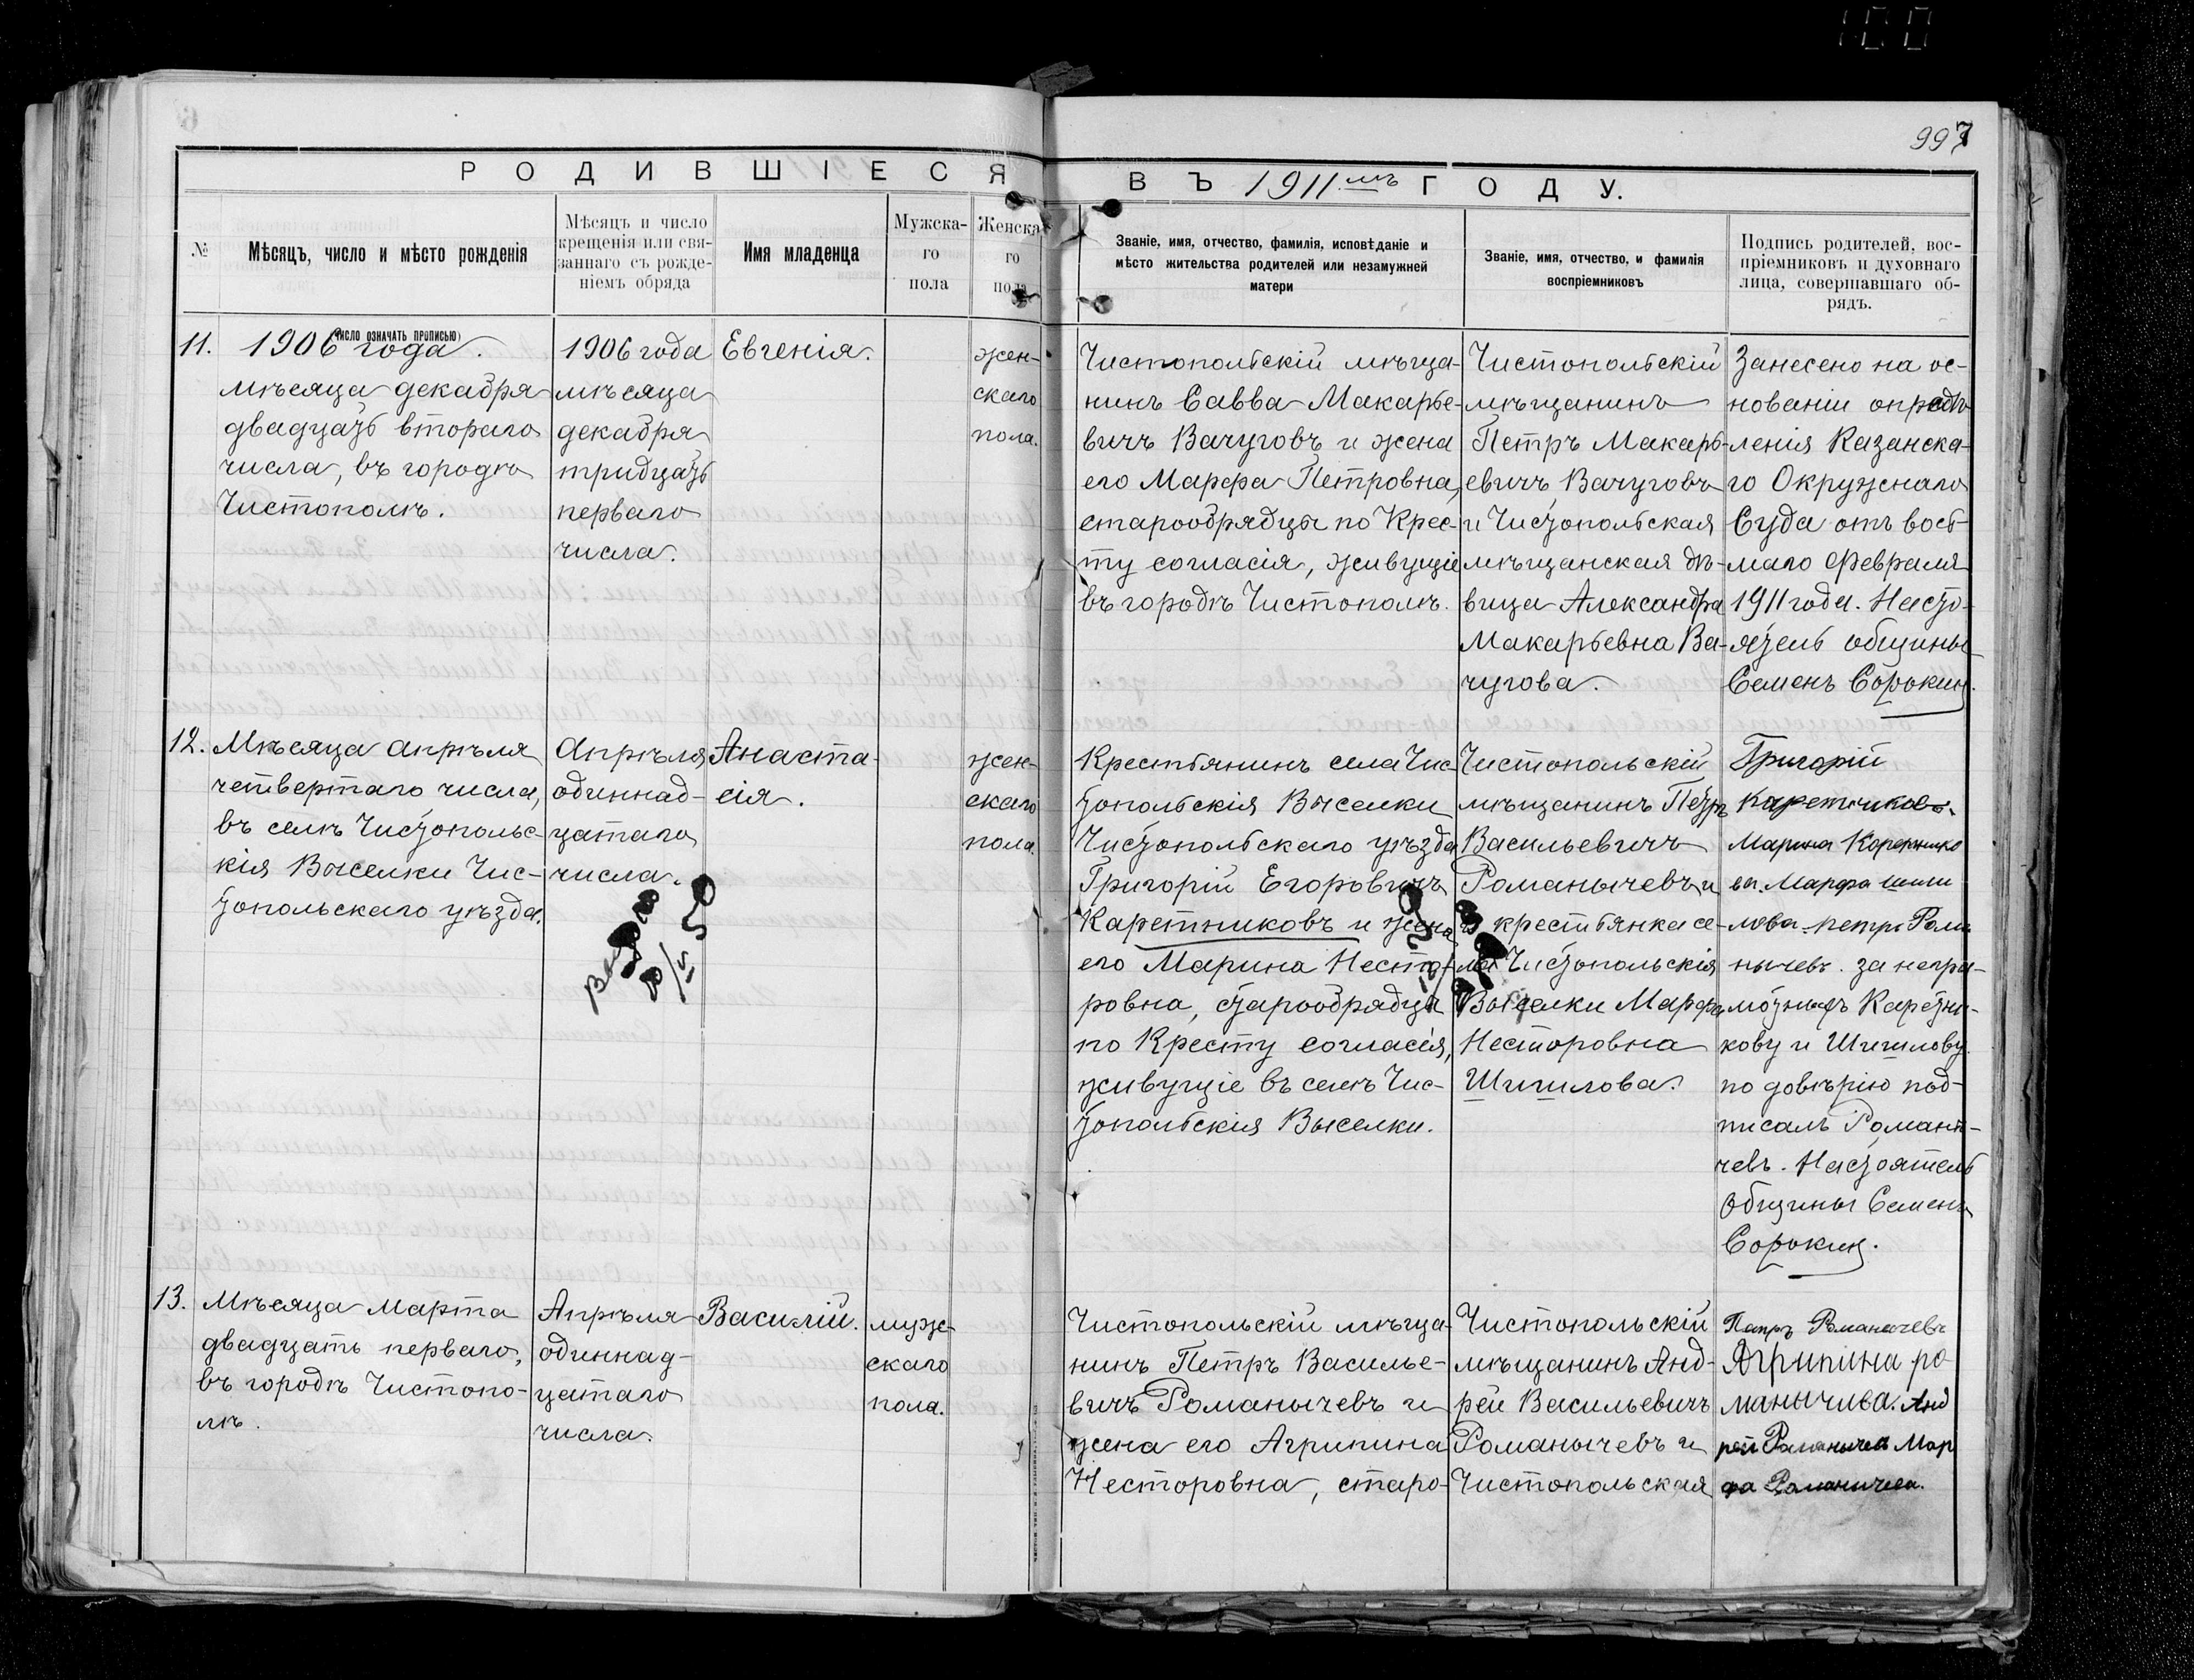 100
997
РОДИВШІЕСЯ ВЪ 1911мъ ГОДУ.
№
Мѣсяцъ, число и мѣсто рожденія
Мѣсяцъ и число
крещенія или свя-
заннаго съ рожде-
ніемъ обряда
Имя младенца
Мужска-
го
пола
Женска
го
пола
Званіе, имя, отчество, фамилія, исповѣданіе и
мѣсто жительства родителей или незамужней
матери
Званіе, имя, отчество, и фамилія
воспріемниковъ
Подпись родителей, вос-
пріемниковъ и духовнаго
лица, совершавшаго об-
рядъ.
(число означать прописью)
11.
1906 года.
мѣсяца декабря
двадцать втораго
числа, въ городѣ
Чистополѣ.
1906 года
мѣсяца
декабря
тридцать
перваго
числа.
Евгенія.
жен-
скаго
пола.
Чистопольскій мѣща-
нинъ Савва Макарье-
вичъ Вачуговъ и жена
его Марфа Петровна,
старообрядцы по Крес-
ту согласія, живущіе
въ городѣ Чистополѣ.
Чистопольскій
мѣщанинъ
Петръ Макарь-
евичъ Вачуговъ
и Чистопольская
мѣщанская дѣ-
вица Александра
Макарьевна Ва-
чугова.
Занесено на ос-
нованіи опредѣ
ленія Казанска-
го Окружнаго
Суда отъ вось-
маго Февраля
1911 года. Насто-
ятель общины
Семенъ Сорокин.
12.
Мѣсяца апрѣля
четвертаго числа,
въ селѣ Чистопольс-
кія Выселки Чис-
топольскаго уѣзда.
Апрѣля
одиннад-
цатаго
числа.
Анаста-
сія.
жен-
скаго
пола.
Крестьянинъ села Чис-
топольскія Выселки
Чистопольскаго уѣзда
Григорій Егоровичъ
Каретниковъ и жена
его Марина Несто-
ровна, старообрядцы
по Кресту согласія,
живущіе въ селѣ Чис-
топольскія Выселки.
Чистопольскій
мѣщанинъ Петръ
Васильевичъ
Романычевъ и
крестьянка се-
ла Чистопольскія
Выселки Марфа
Несторовна
Шишлова.
Григорій
Каретников.
Марина Каретнико
ва. Марфа Шиш
лова. петръ Рома
нычевъ. за негра-
мотныхъ Каретни-
кову и Шишлову
по довѣрію под-
писалъ Романы-
чевъ. Настоятель
Общины Семенъ
Сорокин.
13.
Мѣсяца Марта
двадцать перваго,
въ городѣ Чистопо-
лѣ.
Апрѣля
одиннад-
цатаго
числа.
Василій.
муж-
скаго
пола.
Чистопольскій мѣща-
нинъ Петръ Василье-
вичъ Романычевъ и
жена его Агрипина
Несторовна, старо-
Чистопольскій
мѣщанинъ Анд-
рей Васильевичъ
Романычевъ и
Чистопольская
Петръ Романычевъ
Агрипина ро-
манычива. Анд
рей Романычев Мар
фа Романычева.